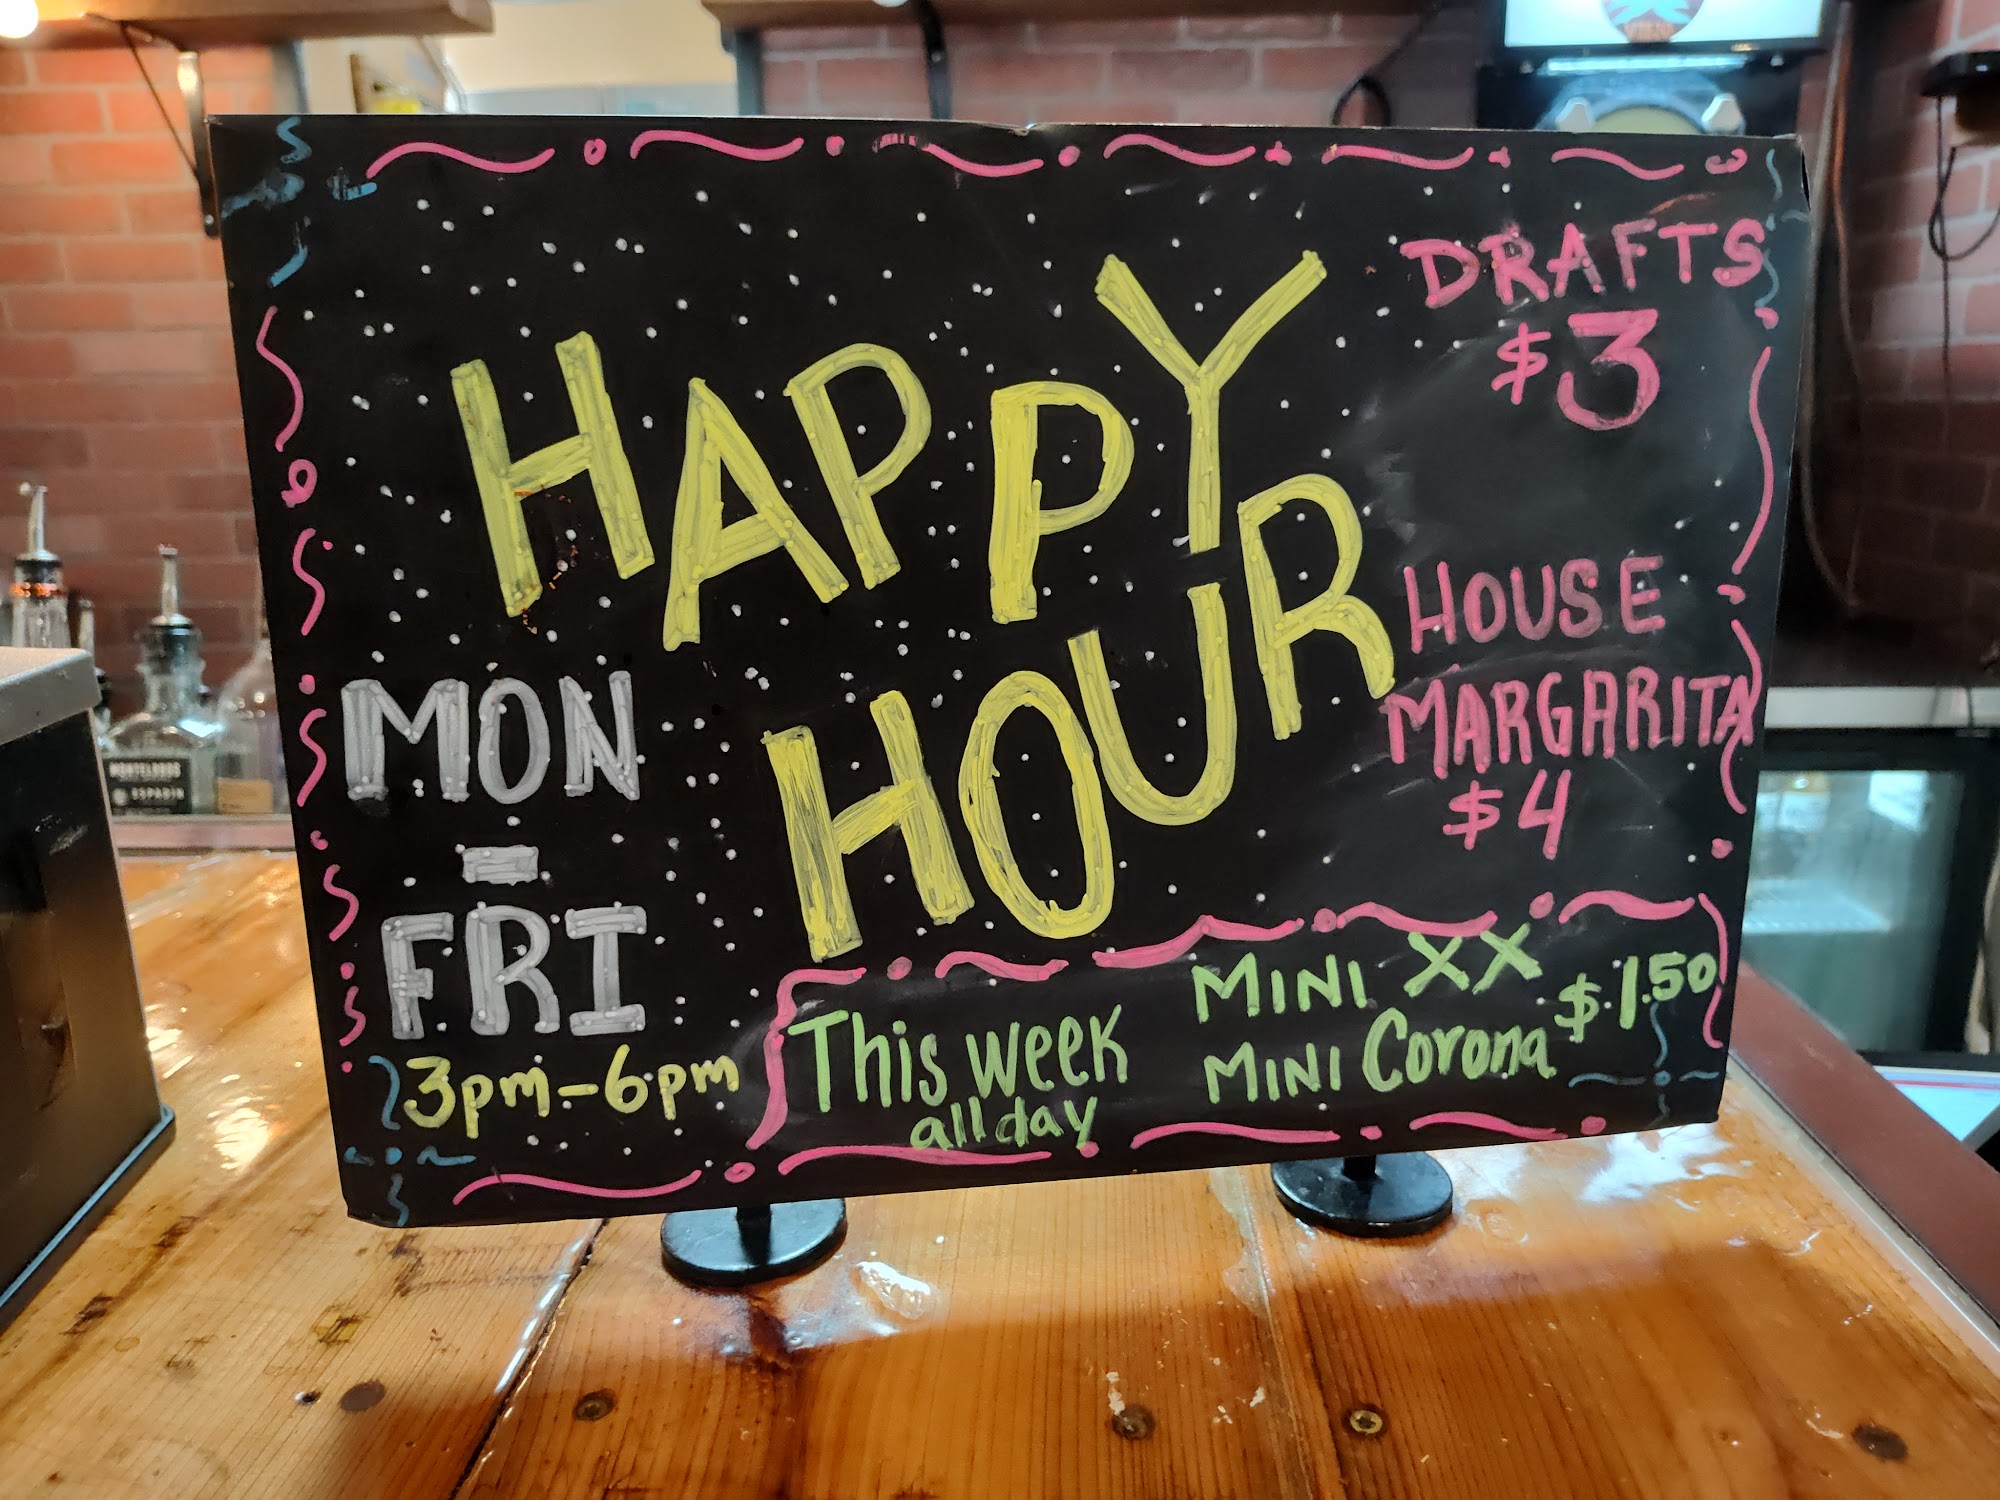 HAPPY
HOUR
MON
-
FRI
3pm-6pm
DRAFTS
$3
HOUSE
MARGARITA
$4
This week
all day
MINI XX
MINI Corona
$1.50
MONTELOBOS
ESPADÍN